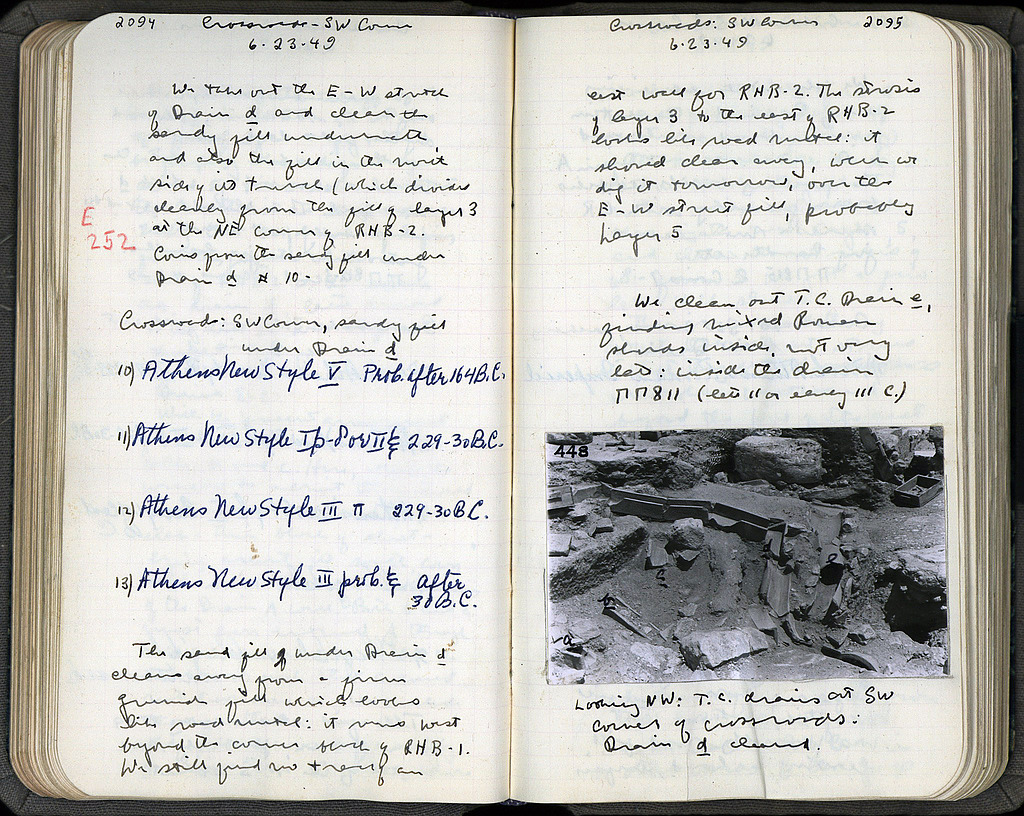 2094 Crossroads - SW Corner
6.23.49
We take out the E-W stretch
of Drain d and clean the
sandy fill underneath
and also the fill in the north
side of its trench (which divides
cleanly from the fill of layer 3
at the NE corner of RHB-2.
E
252
Coins from the sandy fill under
Drain d # 10-
Crossroads: SW Corner, sandy fill
under Drain d
10) Athens New Style V Prob. after 164 B.C.
11) Athens New Style 229-30 B.C.
12) Athens New Style III π 229-30 B.C.
13) Athens New Style III prob. after
30 B.C.
The sand fill under Drain d
cleans away from a firm
fill which looks
like road metal: it runs west
beyond the corner of RHB-1.
We still find no trace of an
Crossroads: SW Corner 2095
6.23.49
east wall for RHB-2. The strosis
of layer 3 to the east of RHB-2
looks like road metal: it
should clean away, when we
dig it tomorrow, over the
E-W street fill, probably
Layer 5
We clean out T.C. Drain e,
finding mixed Roman
sherds inside, not very
late: inside the drain
ΠΠ811 (late II or early III C.)
448
Looking NW: T.C. drains at SW
corner of crossroads:
Drain d cleaned.